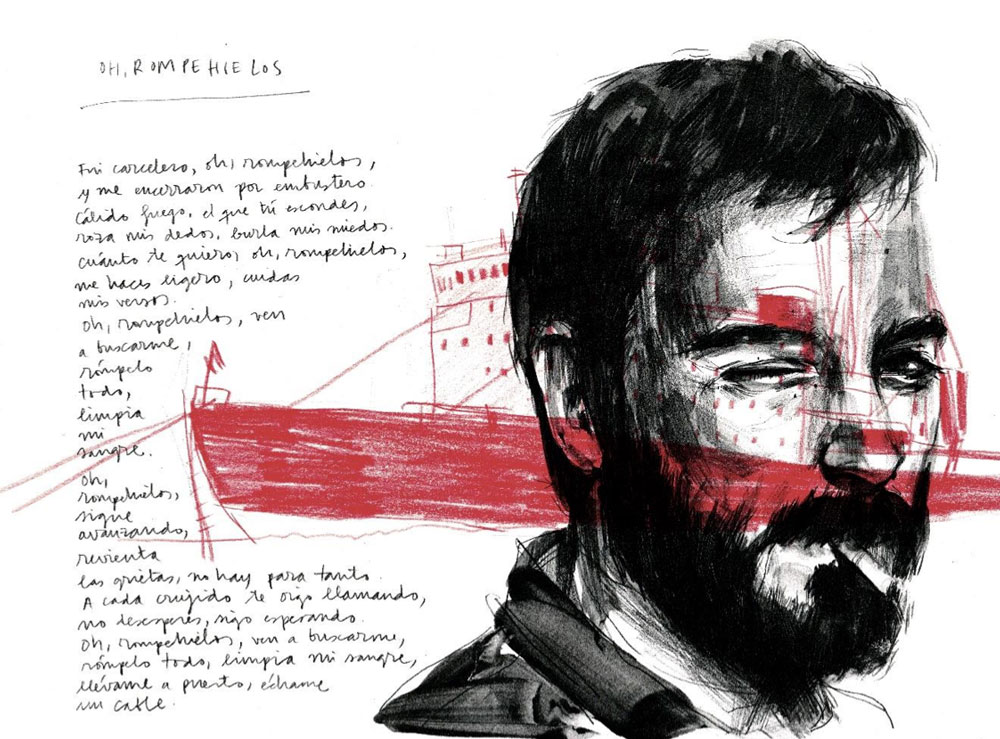 OH, ROMPEHIELOS
Fui carcelero, oh, rompehielos,
y me encerraron por embustero.
Cálido fuego, el que tú escondes,
roza mis dedos, burla mis miedos.
Cuánto te quiero, oh, rompehielos,
me haces ligero, cuidas
mis versos.
Oh, rompehielos, ven
a buscarme,
rómpelo
todo,
limpia
mi
sangre.
Oh,
rompehielos,
sigue
avanzando,
revienta
las grietas, no hay para tanto.
A cada crujido te oigo llamando,
no desesperes, sigo esperando.
Oh, rompehielos, ven a buscarme,
rómpelo todo, limpia mi sangre,
llévame a puerto, échame
un cable.